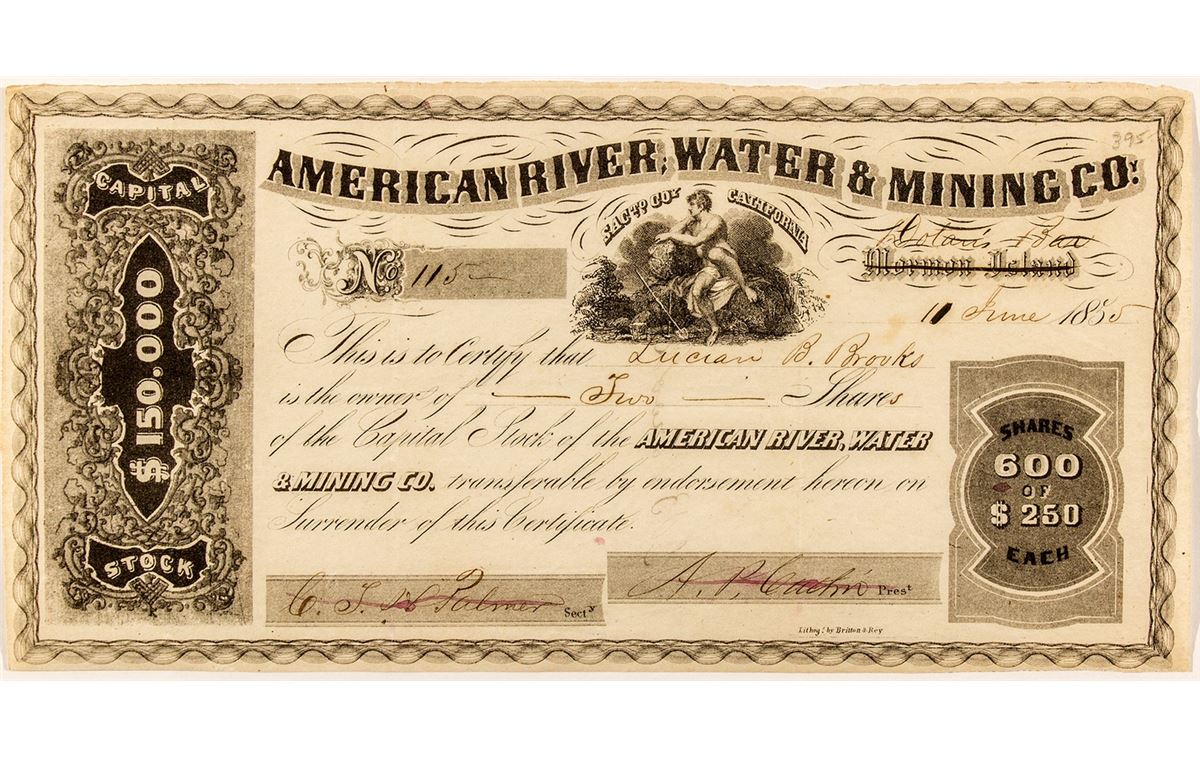 395
AMERICAN RIVER, WATER & MINING COY.
SACTO. COY. CALIFORNIA
CAPITAL
$150.000
STOCK
No. 115
Dotans Bar
Mormon Island
11 June 1855
This is to Certify that Lucian B. Brooks
is the owner of Two Shares
of the Capital Stock of the AMERICAN RIVER, WATER
& MINING CO. transferable by endorsement hereon on
Surrender of this Certificate.
SHARES
600
OF
$250
EACH
Palmer Secty
A. P. Catlin Prest
Lithog. by Britton & Rey